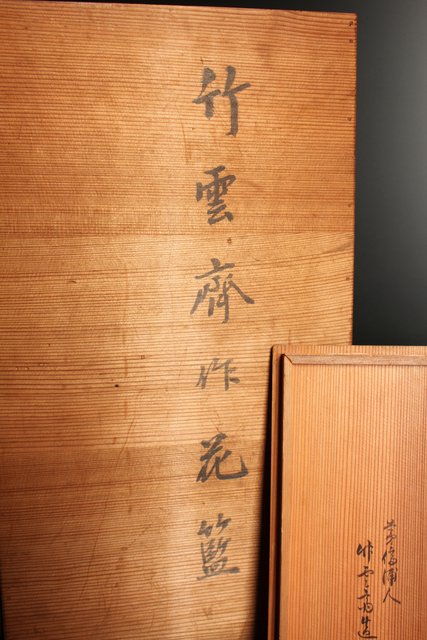 竹雲齊作花籃
竹雲斎造